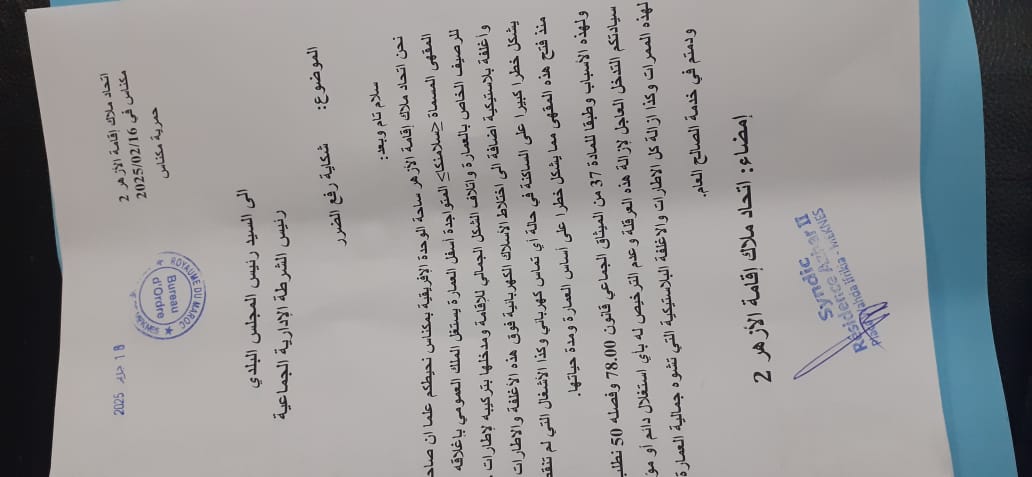 اتحاد ملاك إقامة الأزهر 2
مكناس في 2025/02/16
حمرية مكناس
ROYAUME DU MAROC
Bureau
d'Ordre
18 2025
الى السيد رئيس المجلس البلدي
رئيس الشرطة الإدارية الجماعية
الموضوع: شكاية رفع الضرر
سلام تام وبعد:
نحن اتحاد ملاك إقامة الأزهر ساحة الوحدة الإفريقية بمكناس نحيطكم علما ان صاحب
المقهى المسماة <سلامنكا> المتواجدة أسفل العمارة يستغل الملك العمومي باغلاقه
للرصيف الخاص بالعمارة واتلاف الشكل الجمالي للإقامة ومدخلها بتركيبه لإطارات
وأغلفة بلاستيكية اضافة الى اختلاط الأسلاك الكهربائية فوق هذه الأغلفة والاطارات
يشكل خطرا كبيرا على الساكنة في حالة أي تماس كهربائي وكذا الأشغال التي لم تنقطع
منذ فتح هذه المقهى مما يشكل خطرا على أساس العمارة ومدة حياتها.
ولهذه الأسباب وطبقا للمادة 37 من الميثاق الجماعي قانون 78.00 وفصله 50 نطلب
سيادتكم التدخل العاجل لإزالة هذه العرقلة وعدم الترخيص له باي استغلال دائم أو
لهذه الممرات وكذا ازالة كل الاطارات والاغلفة البلاستيكية التي تشوه جمالية العمارة
ودمتم في خدمة الصالح العام.
إمضاء: اتحاد ملاك إقامة الأزهر 2
Syndic
Résidence Azhar II
MEKNES